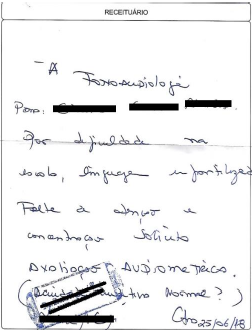 RECEITUÁRIO
- A Fonoaudiologia
Para:
Por dificuldade na
escola, linguagem
Falta de atenção e
concentração Solicito
Avaliação Audiométrica.
(Normal?)
25/06/18